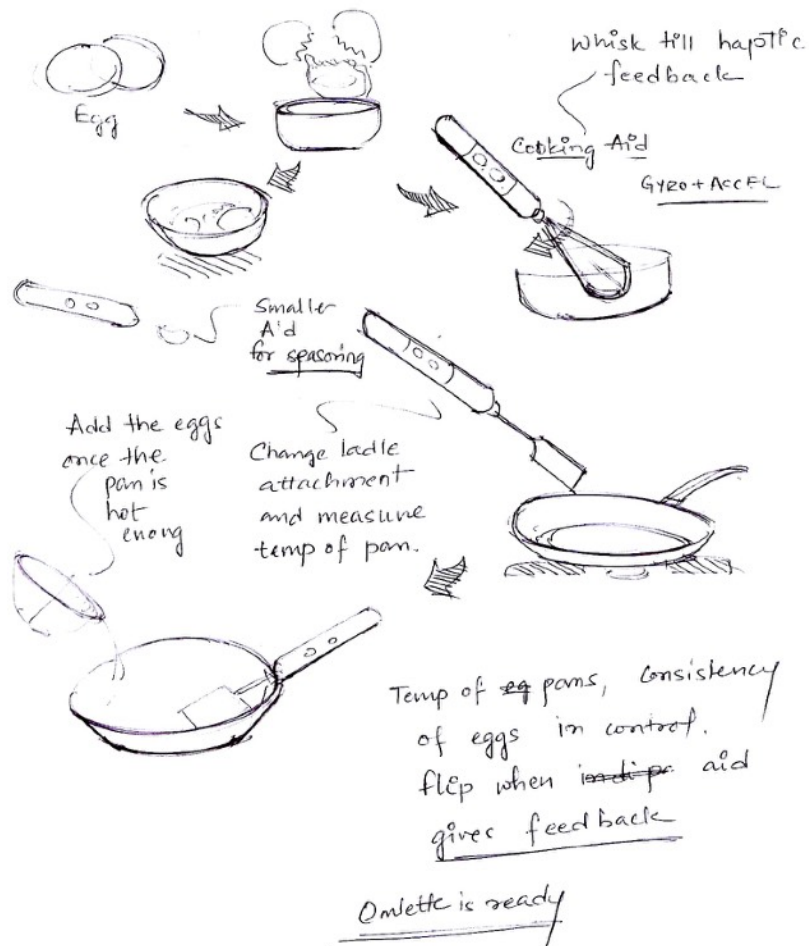 Egg
whisk till haptic
feedback
Cooking Aid
GYRO + ACCEL
Smaller
Aid
for seasoring
Add the eggs
once the
pan is
hot
enong
Change ladle
attachment
and measure
temp of pan.
Temp of eg pans, consistency
of eggs in control.
flip when aid
gives feedback
Omlette is ready